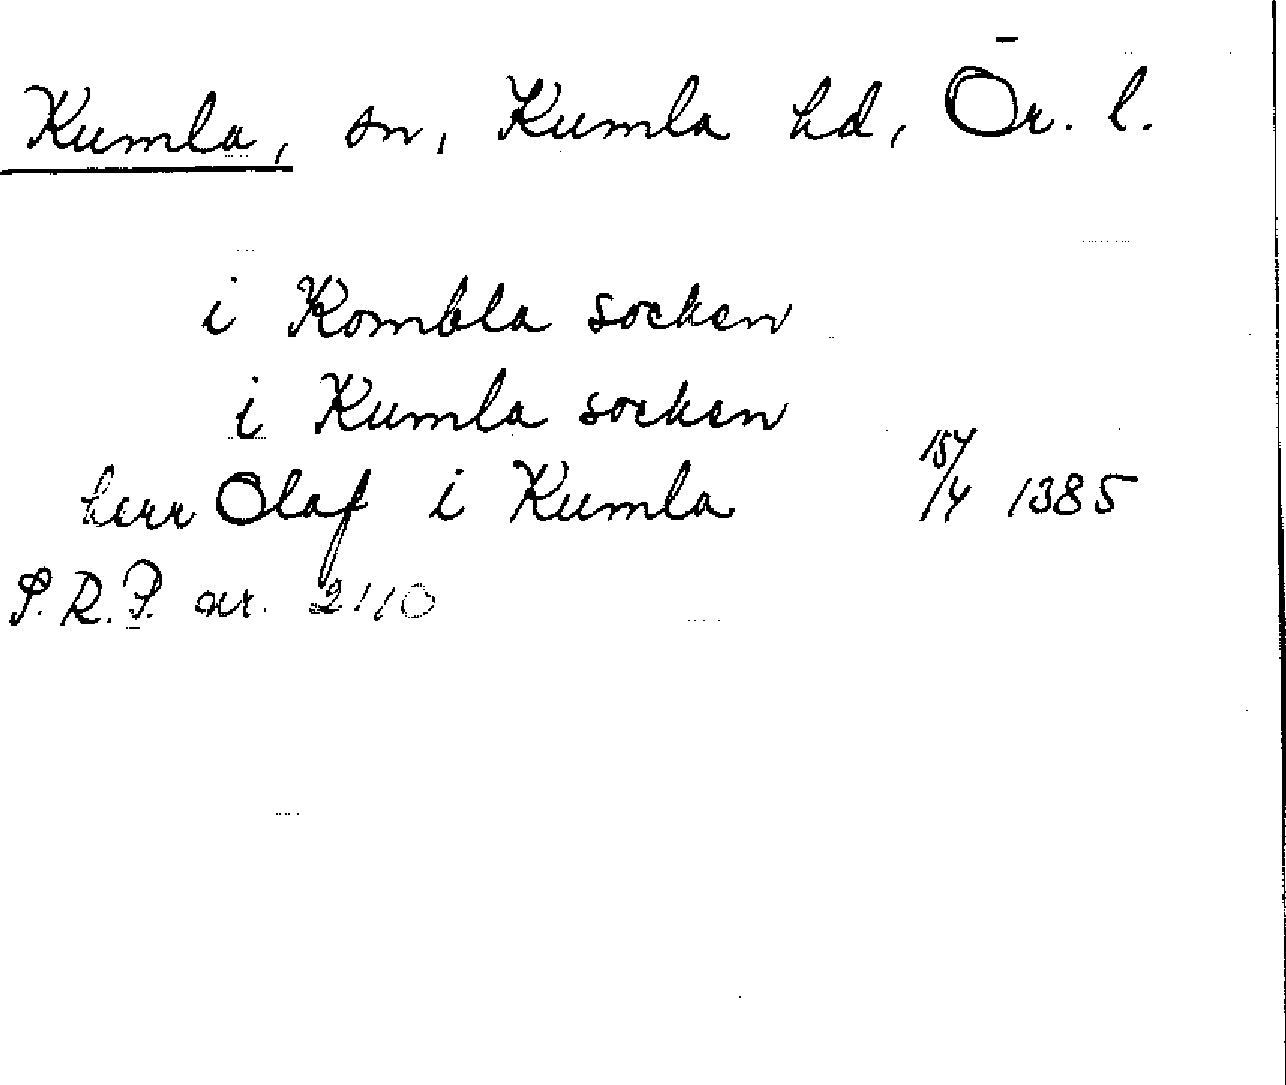 Kumla, sn, Kumla hd, Ör. l.
i Kombla socken
i Kumla socken
herr Olaf i Kumla 15/4 1385
S.R.P. nr. 2110